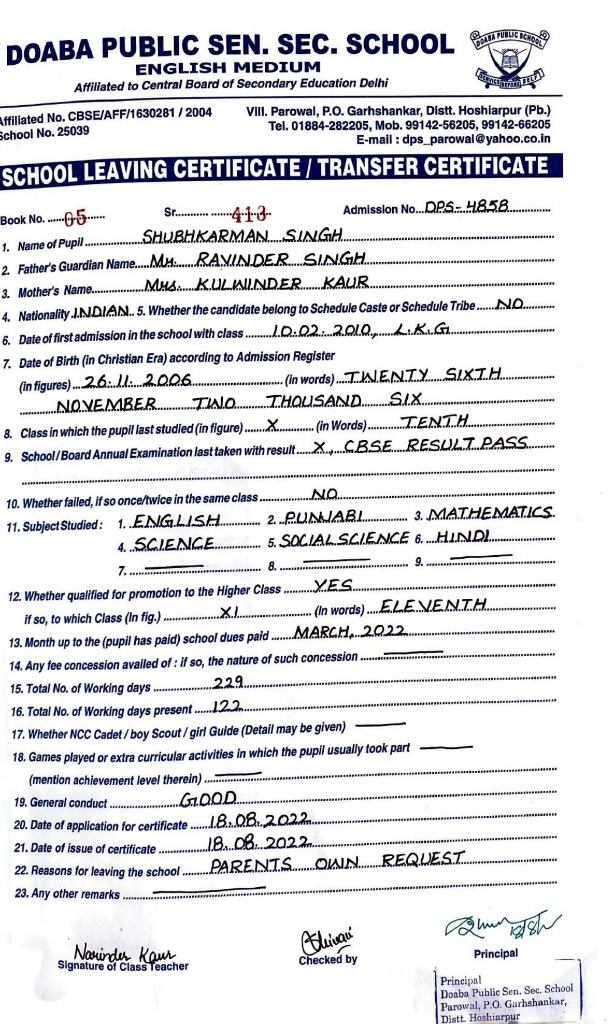 DOABA PUBLIC SEN. SEC. SCHOOL
ENGLISH MEDIUM
Affiliated to Central Board of Secondary Education Delhi
DOABA PUBLIC SCHOOL
SERVICE BEFORE SELF
Affiliated No. CBSE/AFF/1630281 / 2004
School No. 25039
Vill. Parowal, P.O. Garhshankar, Distt. Hoshiarpur (Pb.)
Tel. 01884-282205, Mob. 99142-56205, 99142-66205
E-mail : dps_parowal@yahoo.co.in
SCHOOL LEAVING CERTIFICATE / TRANSFER CERTIFICATE
Book No. 05 Sr. 413 Admission No. DPS-4858
1. Name of Pupil SHUBHKARMAN SINGH
2. Father's Guardian Name Mr. RAVINDER SINGH
3. Mother's Name Mrs. KULWINDER KAUR
4. Nationality INDIAN 5. Whether the candidate belong to Schedule Caste or Schedule Tribe NO
6. Date of first admission in the school with class 10.02.2010, L.K.G
7. Date of Birth (in Christian Era) according to Admission Register
(in figures) 26.11.2006 (in words) TWENTY SIXTH
NOVEMBER TWO THOUSAND SIX
8. Class in which the pupil last studied (in figure) X (in Words) TENTH
9. School/Board Annual Examination last taken with result X, CBSE RESULT PASS
10. Whether failed, if so once/twice in the same class NO
11. Subject Studied : 1. ENGLISH 2. PUNJABI 3. MATHEMATICS
4. SCIENCE 5. SOCIAL SCIENCE 6. HINDI
7. 8. 9.
12. Whether qualified for promotion to the Higher Class YES
if so, to which Class (In fig.) XI (In words) ELEVENTH
13. Month up to the (pupil has paid) school dues paid MARCH, 2022
14. Any fee concession availed of : if so, the nature of such concession
15. Total No. of Working days 229
16. Total No. of Working days present 122
17. Whether NCC Cadet / boy Scout / girl Guide (Detail may be given)
18. Games played or extra curricular activities in which the pupil usually took part
(mention achievement level therein)
19. General conduct GOOD
20. Date of application for certificate 18.08.2022
21. Date of issue of certificate 18.08.2022
22. Reasons for leaving the school PARENTS OWN REQUEST
23. Any other remarks
Narinder Kaur
Signature of Class Teacher
Shivani
Checked by
Principal
Principal
Doaba Public Sen. Sec. School
Parowal, P.O. Garhshankar,
Distt. Hoshiarpur